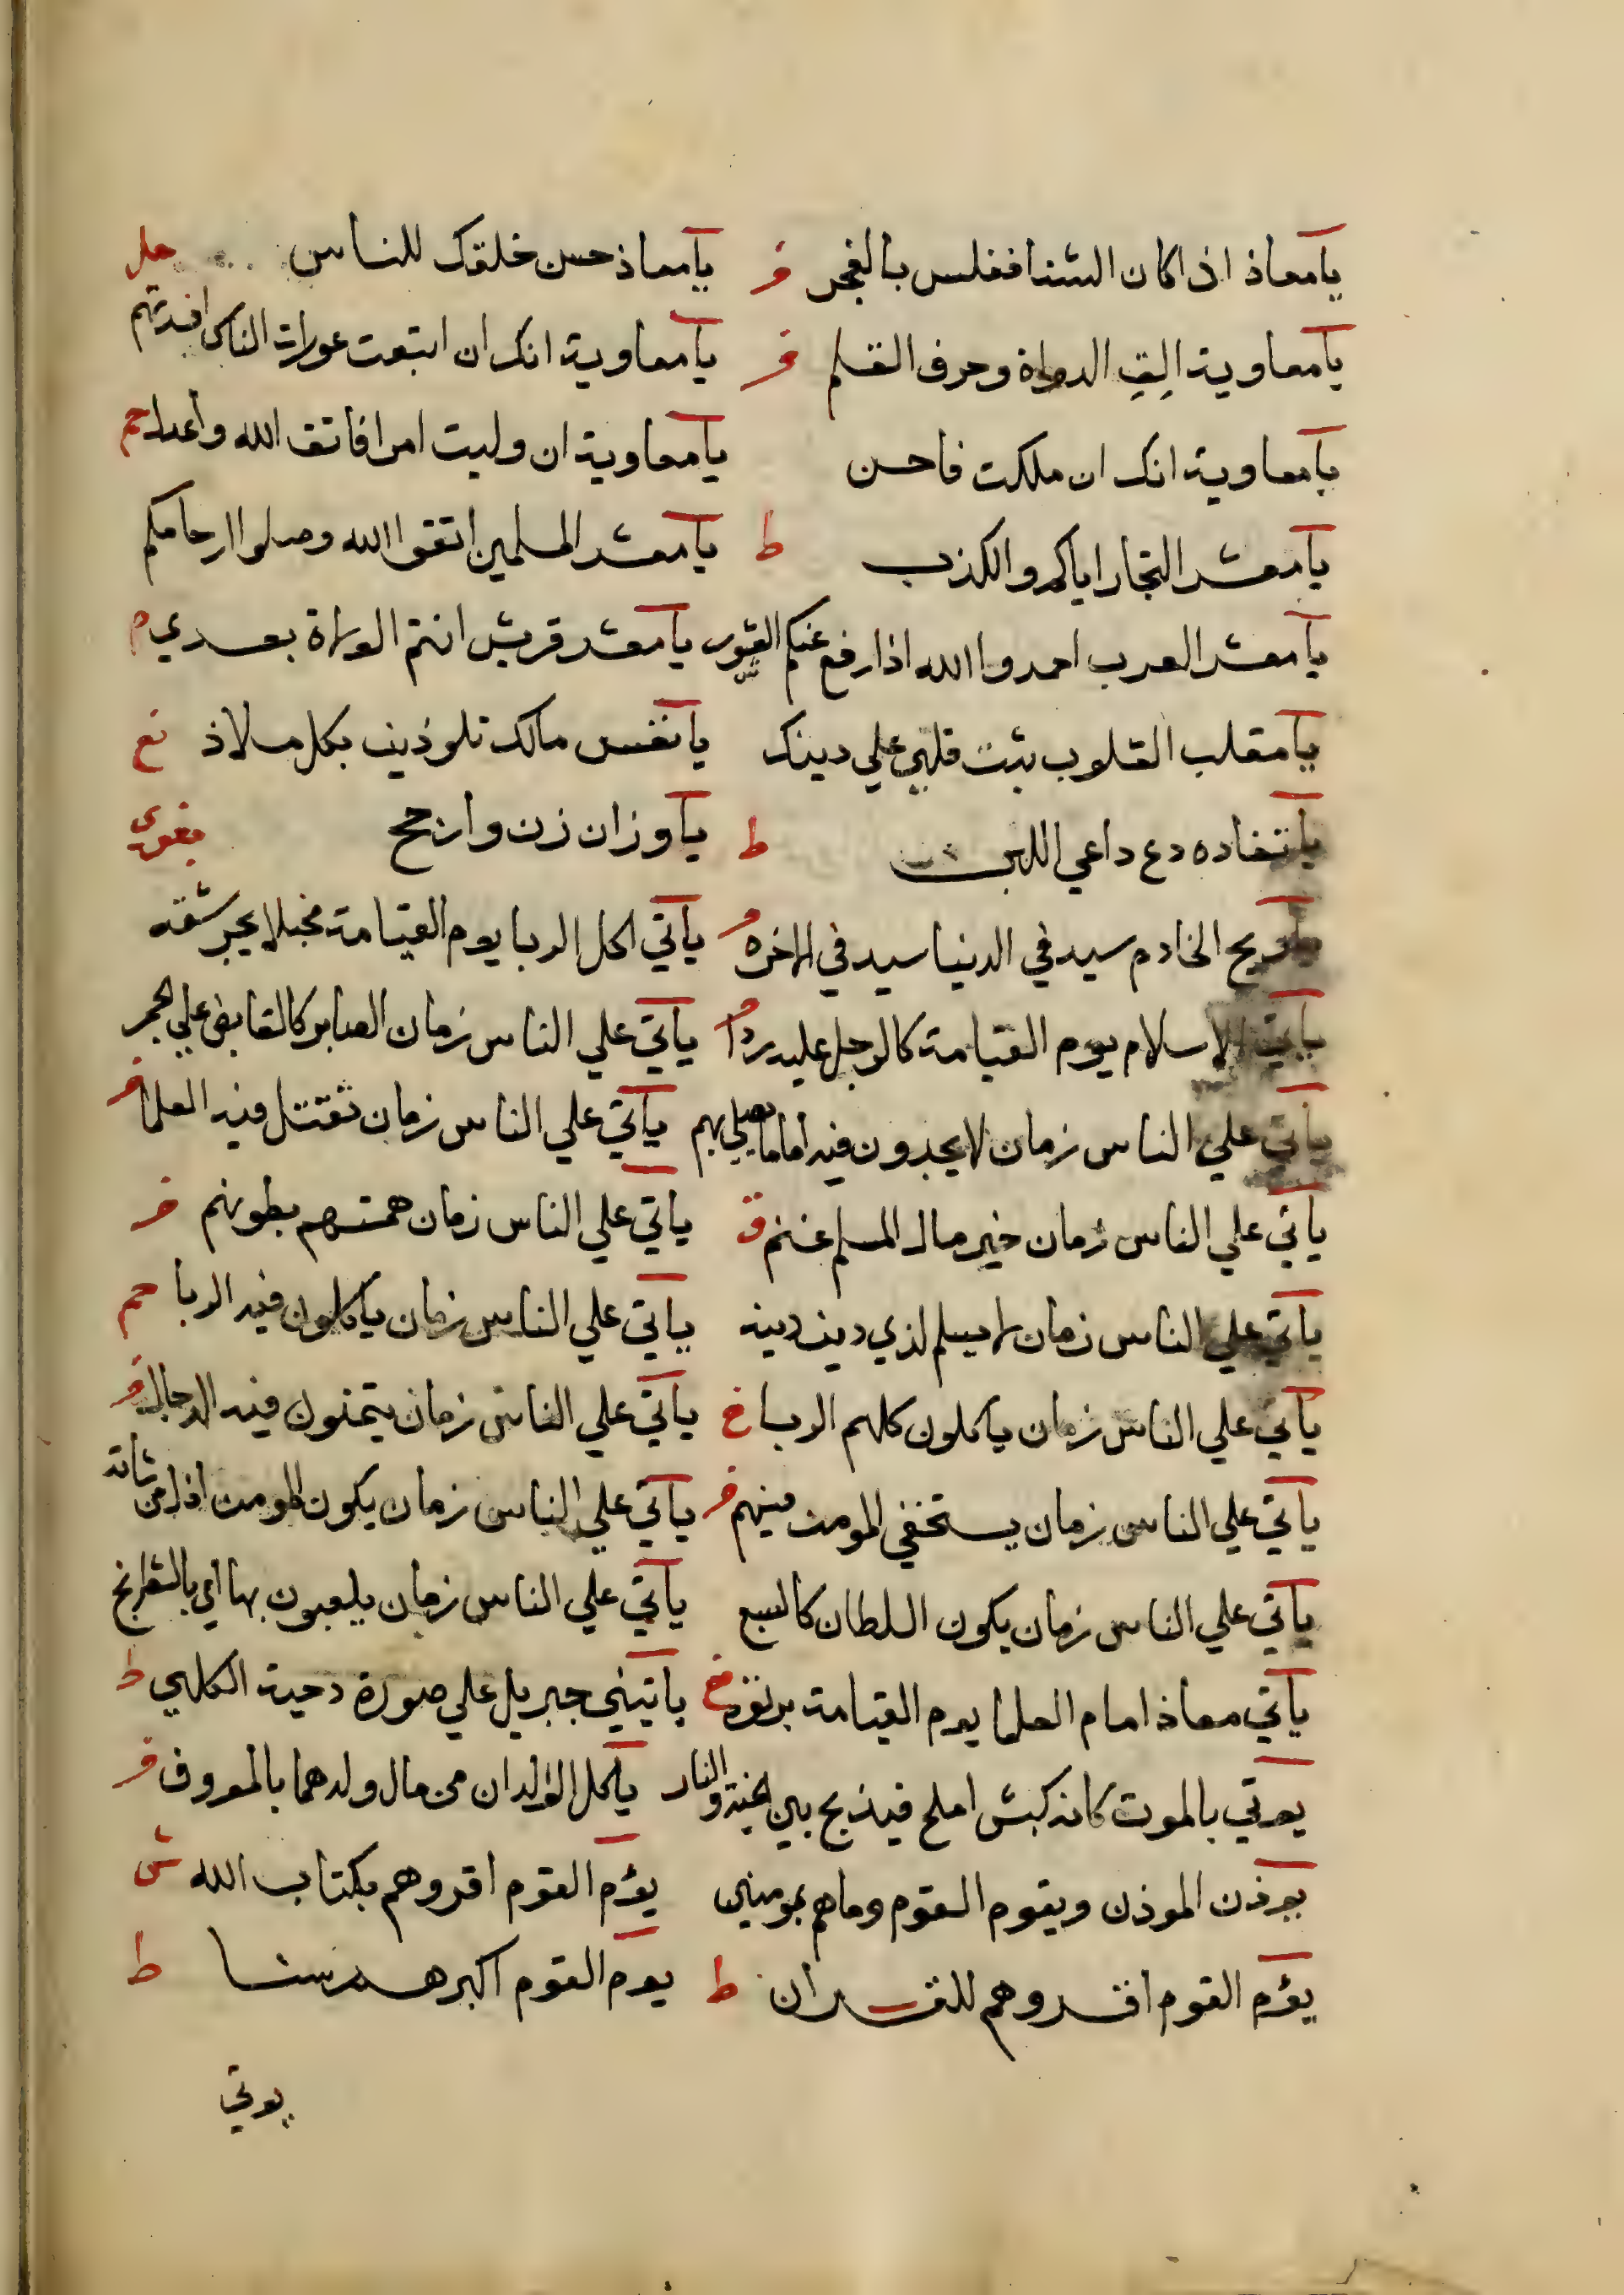 يا معاذ اذا كان الشتا فغلس بالفجر فر يا معاذ حسن خلقك للناس حل
يا معاوية الِقِ الدواة وحرف القلم فر يا معاوية انك ان ابتعت عورات الناس افسدتهم
يا معاوية انك ان ملكت فاحسن يا معاوية ان وليت امرا فاتق الله واعدل حم
يا معشر التجار اياكم والكذب ط يا معشر المسلمين اتقوا الله وصلوا ارحامكم
يا معشر العرب احمدوا الله اذا رفع عنكم العشور يا معشر قريش انتم الولاة بعدي م
يا مقلب القلوب ثبت قلبي علي دينك يا نفس مالك تلوذين بكل ملاذ نع
يا نقاده دع داعي اللبن ط يا وزان زن وارجح بغوي
الخادم سيد في الدنيا سيد في الاخرة فر ياتي اكل الربا يوم القيامة مخبلا يجر شقه
ياتي الاسلام يوم القيامة كالرجل عليه ردا فر ياتي علي الناس زمان الصابر كالقابض علي الجمر
ياتي علي الناس زمان لا يجدون فيه اماما يصلي بهم ياتي علي الناس زمان تقتل فيه العلما فر
ياتي علي الناس زمان خير مال المسلم غنم ق ياتي علي الناس زمان همتهم بطونهم فر
ياتي علي الناس زمان لا يسلم لذي دين دينه ياتي علي الناس زمان ياكلون فيه الربا حم
ياتي علي الناس زمان ياكلون كلهم الربا خ ياتي علي الناس زمان يتمنون فيه الدجال فر
ياتي علي الناس زمان يستخفي المومن فيهم فر ياتي علي الناس زمان يكون المومن اذل من شاته
ياتي علي الناس زمان يكون السلطان كالسبع ياتي علي الناس زمان يلعبون بها اي بالشطرنج
ياتي معاذ امام العلما يوم القيامة برتوة خ ياتيني جبريل علي صورة دحية الكلبي ط
يوتي بالموت كانه كبش املح فيذبح بين الجنة والنار ياكل الوالدان من مال ولدهما بالمعروف فر
يوذن الموذن ويقوم القوم وما هم بمومنين يؤم القوم اقروهم بكتاب الله ش
يؤم القوم اقروهم للقران ط يوم القوم اكبرهم سنا ط
يوتي